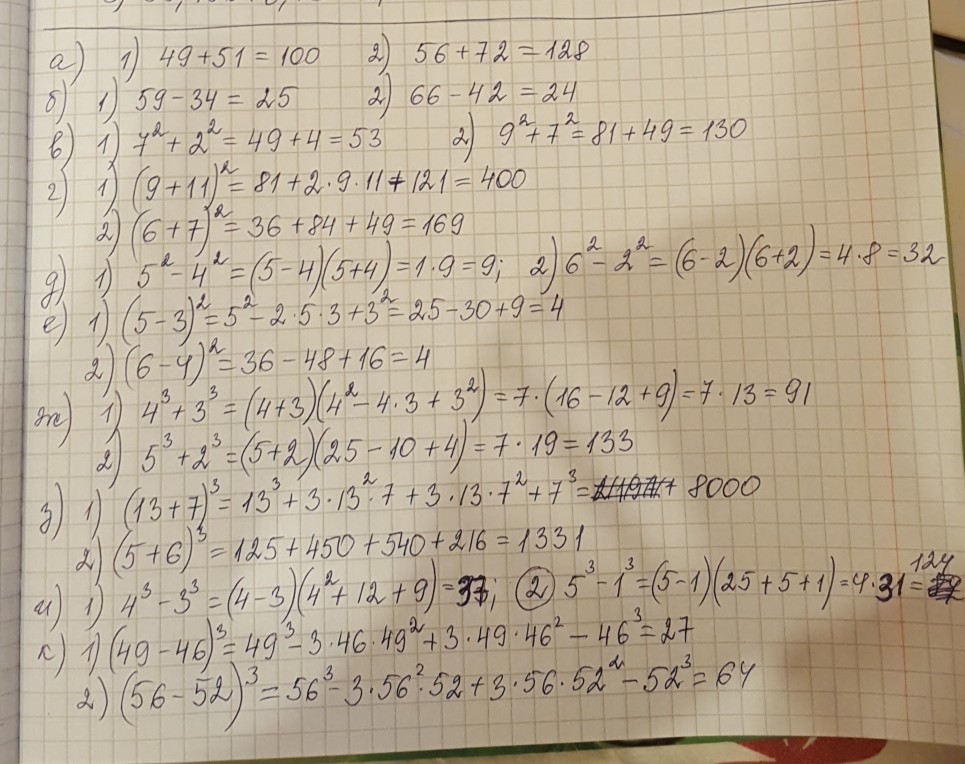 а) 1) 49+51=100 2) 56+72=128
б) 1) 59-34=25 2) 66-42=24
в) 1) 7²+2²=49+4=53 2) 9²+7²=81+49=130
г) 1) (9+11)²=81+2·9·11+121=400
2) (6+7)²=36+84+49=169
д) 1) 5²-4²=(5-4)(5+4)=1·9=9; 2) 6²-2²=(6-2)(6+2)=4·8=32
е) 1) (5-3)²=5²-2·5·3+3²=25-30+9=4
2) (6-4)²=36-48+16=4
ж) 1) 4³+3³=(4+3)(4²-4·3+3²)=7·(16-12+9)=7·13=91
2) 5³+2³=(5+2)(25-10+4)=7·19=133
з) 1) (13+7)³=13³+3·13²·7+3·13·7²+7³= 8000
2) (5+6)³=125+450+540+216=1331
и) 1) 4³-3³=(4-3)(4²+12+9)=37; 2) 5³-1³=(5-1)(25+5+1)=4·31=124
к) 1) (49-46)³=49³-3·46·49²+3·49·46²-46³=27
2) (56-52)³=56³-3·56²·52+3·56·52²-52³=64